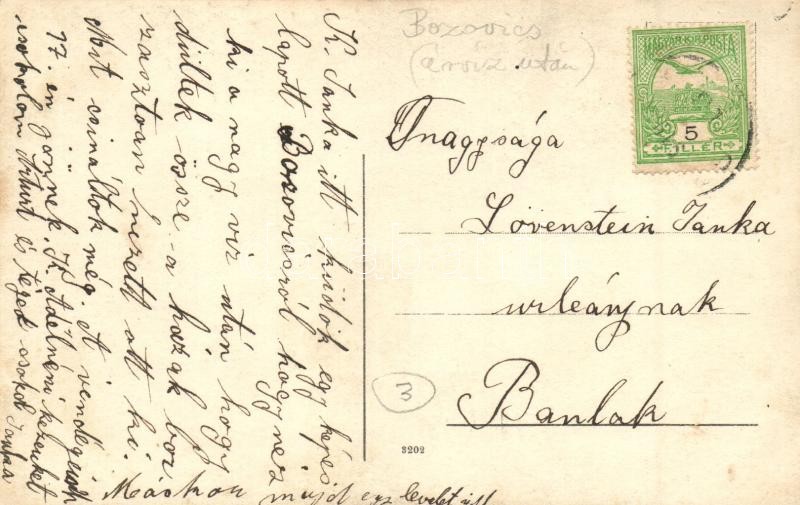 Bozovics
(árvíz után)
MAGYAR KIR. POSTA
5
FILLÉR
Őnagysága
Lövenstein Janka
urleánynak
Banlak
3
3202
K. Janka itt küdök egy képes
lapott Bozovicsról hogy néz
ki a nagy viz után hogy
dültek össze a házak bor
zasztoan nézett ott ki.
Mit csináltok még. A vendégeink
17. én jönnek. K. Adélnéni kezeiket
csokolom Arturt és téged csokol Janka
Máskor majd egy levelet